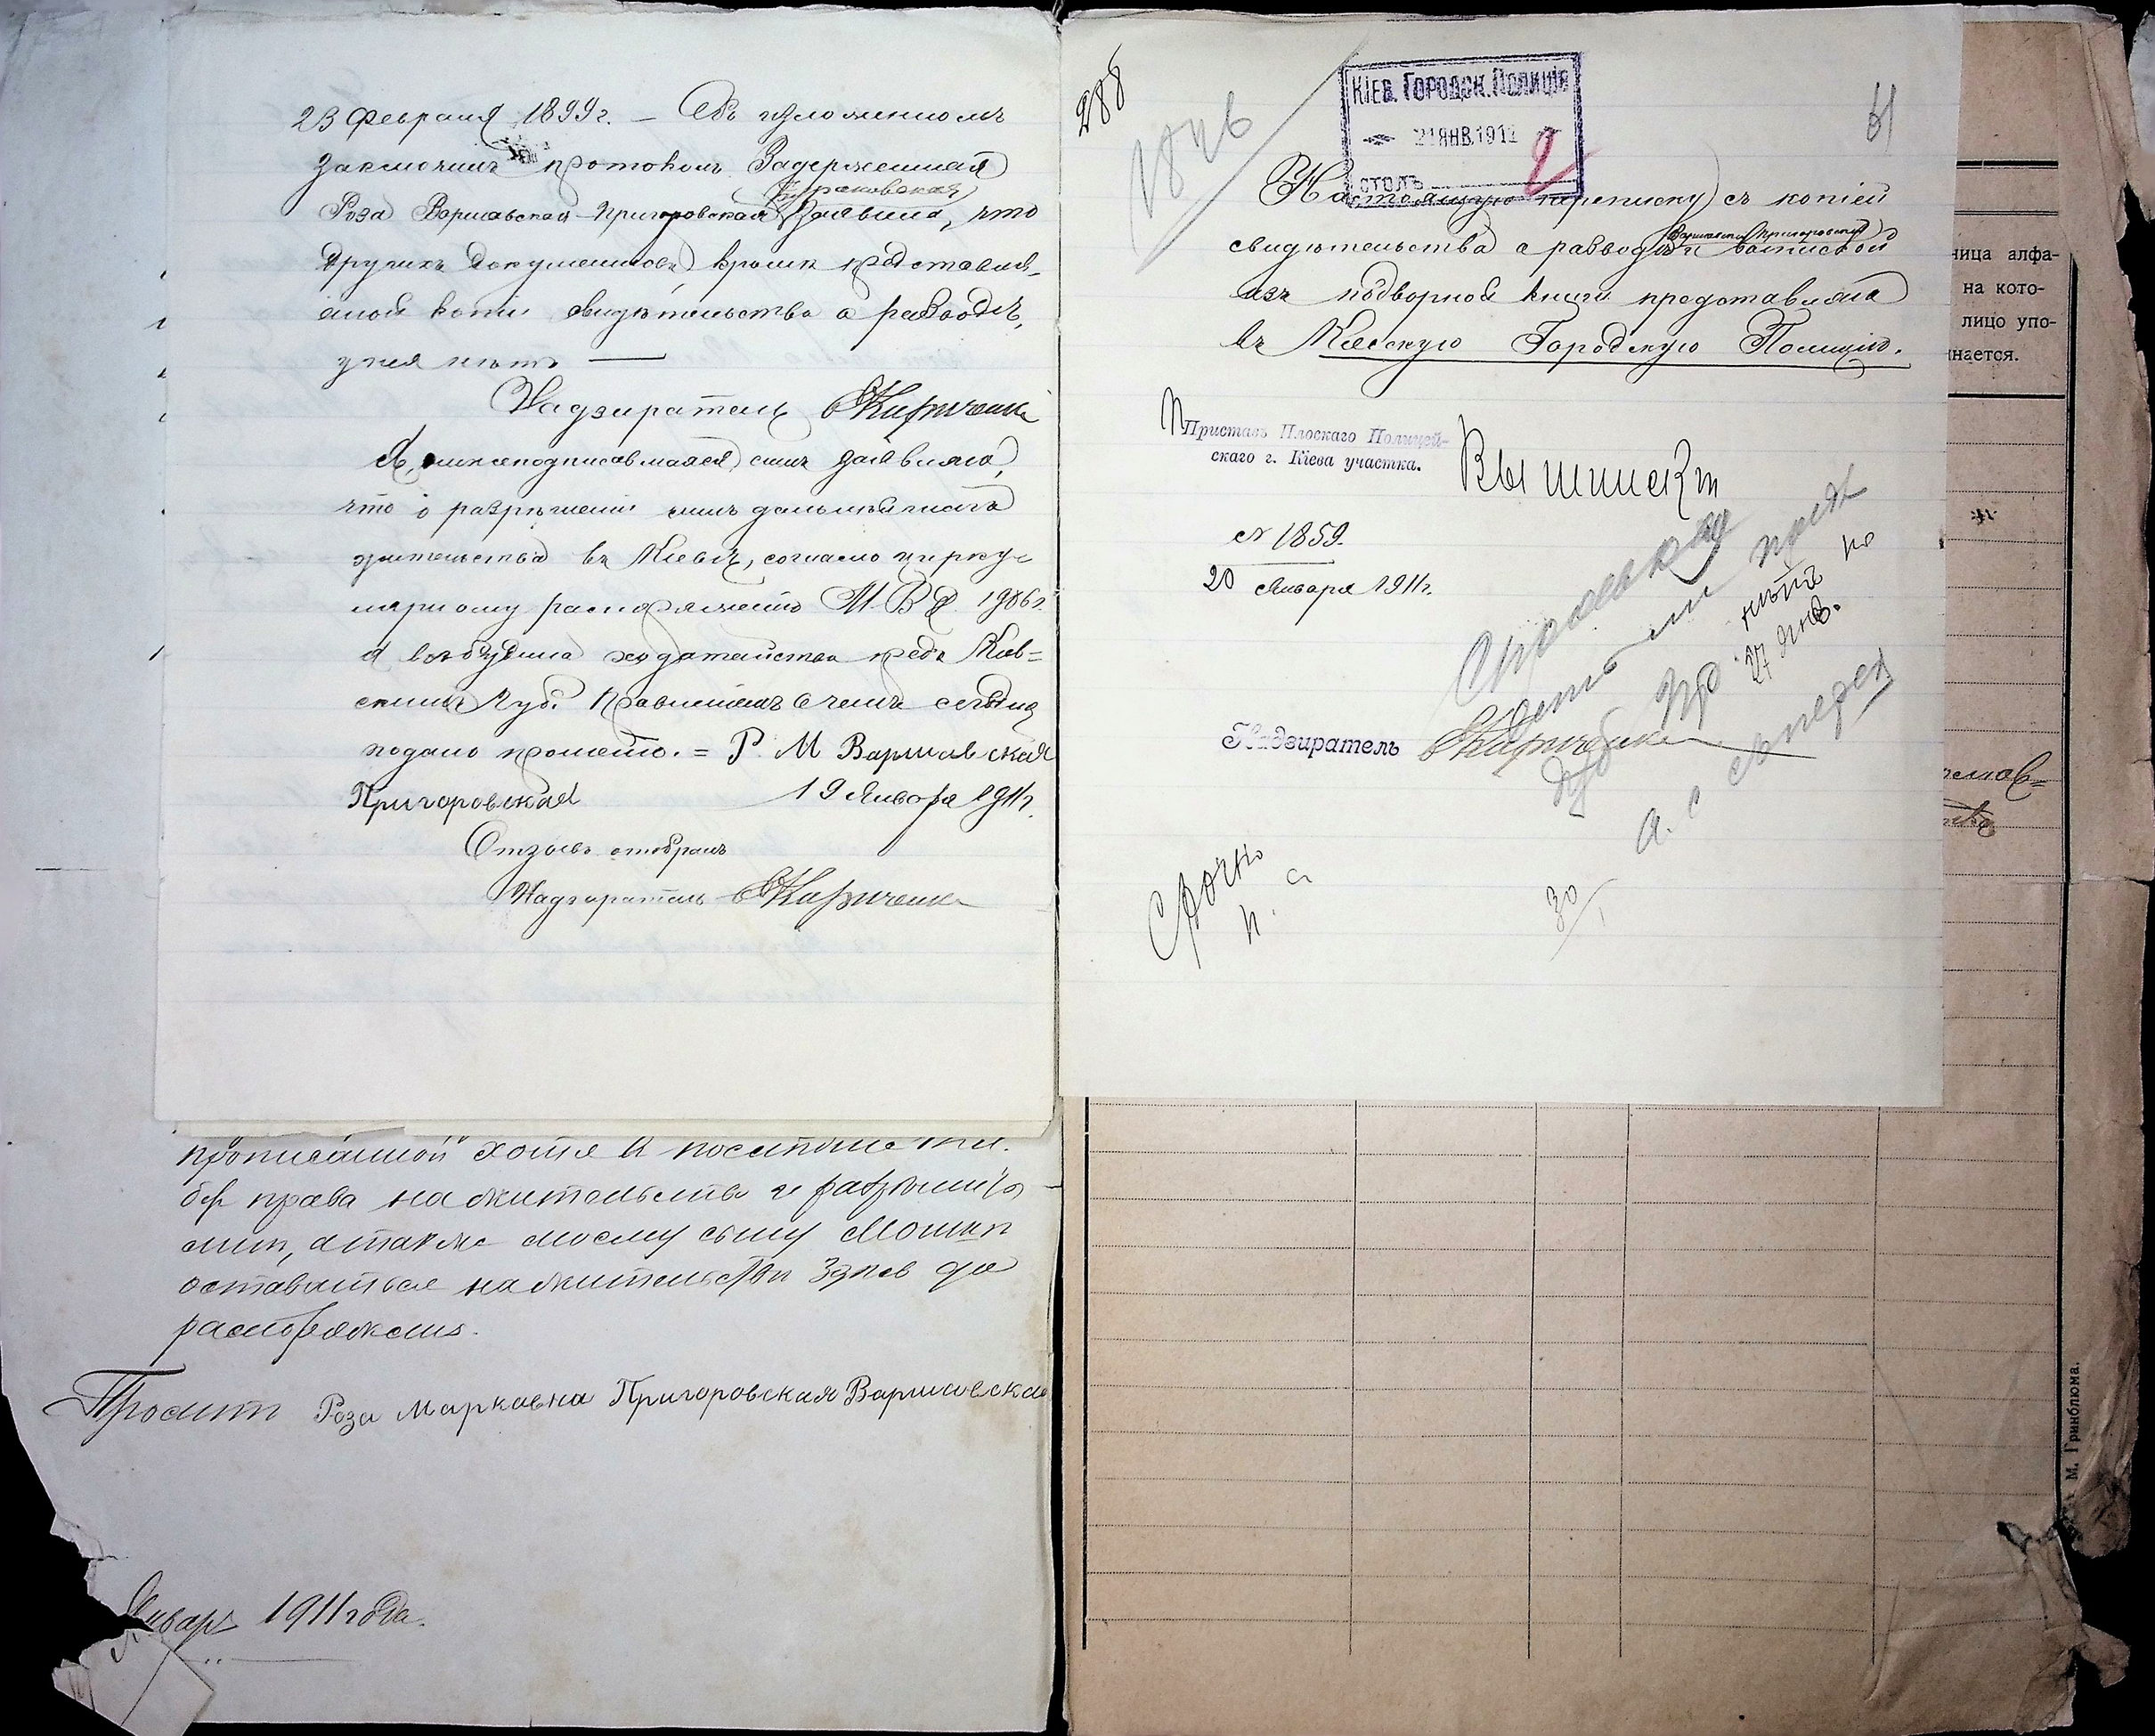 23 Февраля 1899 г. — Объ изложенномъ
заключилъ протоколъ. Задержанная
Роза Варшавская-Пригоровская заявила, что
другихъ документовъ кромѣ представлен-
ной копіи свидѣтельства о разводѣ,
у нея нѣтъ —
Надзиратель
Я, нижеподписавшаяся, симъ заявляю,
что о разрѣшеніи мнѣ дальнѣйшаго
жительства въ Кіевѣ, согласно цирку-
лярному распоряженію М.В.Д. 1906 г.
я возбудила ходатайство предъ Кіев=
скимъ Губ. Правленіемъ о чемъ
подано прошеніе. = Р. М Варшавская
Пригоровская 19 Января 1911 г.
Отзывъ отобралъ
Надзиратель
прописанной хотя и
права на жительство и разрѣшить
мнѣ, а также моему сыну Мошкѣ
оставаться на жительствѣ здѣсь до
распоряженія.
Проситъ Роза Маркавна Пригоровская Варшавская
Январь 1911 года.
288
1826
КІЕВ. ГОРОДСК. ПОЛИЦІЯ
21 ЯНВ. 1911
СТОЛЪ
2
61
Настоящую переписку съ копіей
Варшавской Пригоровской
свидѣтельства о разводѣ и выпиской
изъ подворной книги представляю
въ Кіевскую Городскую Полицію.
Приставъ Плоскаго Полицей-
скаго г. Кіева участка.
№ 1859.
20 Января 1911 г.
27 Янв.
Надзиратель
Срочно
30/1
ница алфа-
на кото-
лицо упо-
инается.
М. Гринблюма.